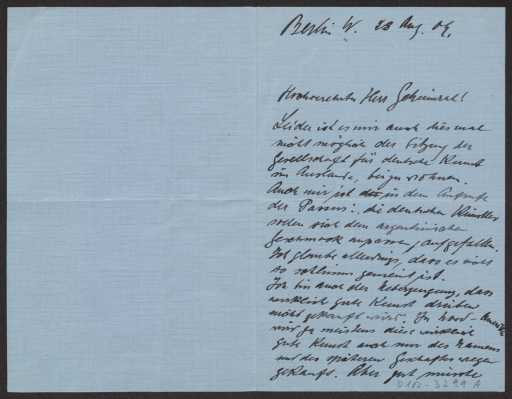 Berlin W. 23 Aug. 09.
Hochverehrter Herr Geheimrat!
Leider ist es mir auch dies mal
nicht möglich der Sitzung der
Gesellschaft für deutsche Kunst
im Auslande, beizuwohnen.
Auch mir ist in dem Aufrufe
der Passus: "die deutschen Künstler
sollen sich dem argentinischen
Geschmack anpassen, aufgefallen.
Ich glaube allerdings, dass es nicht
so schlimm gemeint ist.
Ich bin auch der Ueberzeugung, dass
wirklich gute Kunst drüben
nicht gekauft wird. In Nord-Amerika
wird ja meistens diese wirklich
gute Kunst auch nur des Namens
und des späteren Geschäftes wegen
gekauft. Aber gut müsste
D102-3299 A